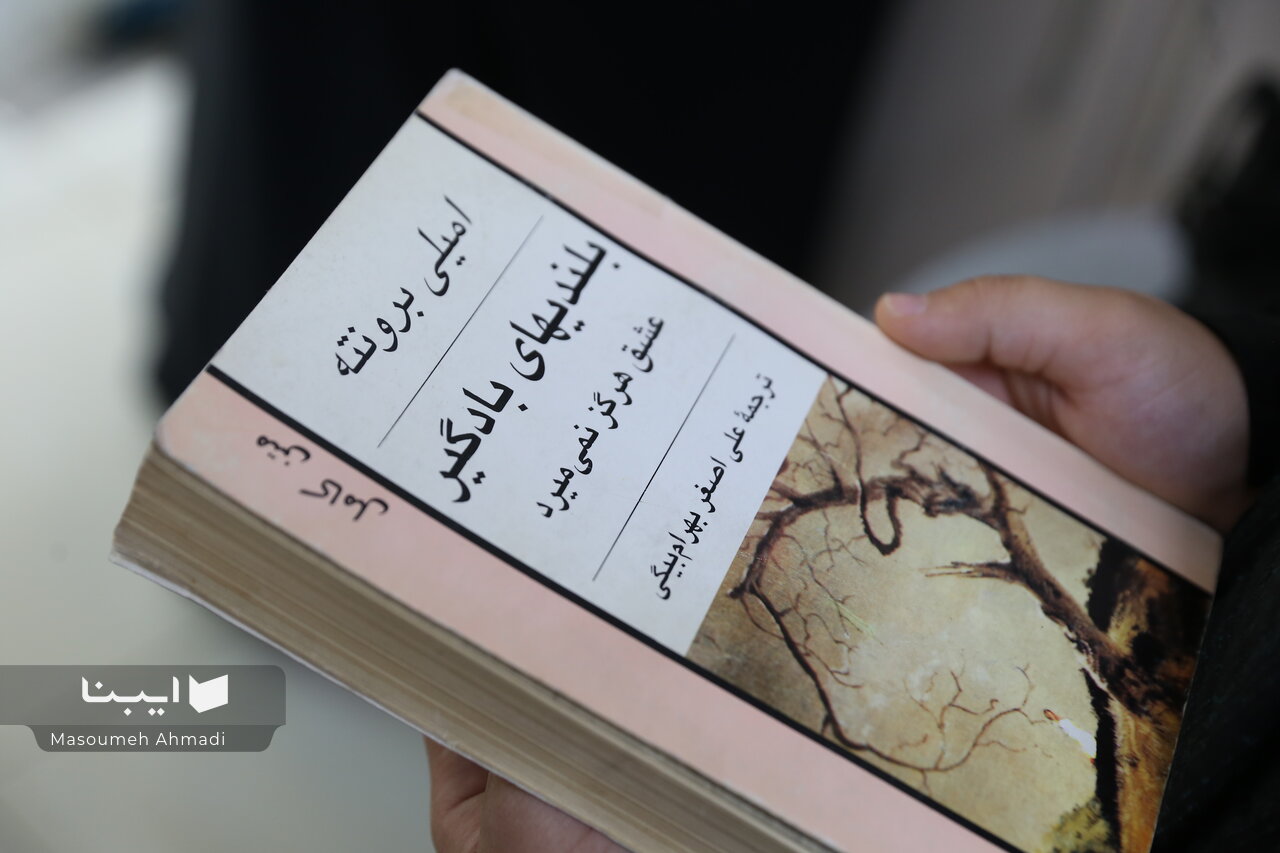 امیلی برونته
بلندیهای بادگیر
عشق هرگز نمی‌میرد
ترجمهٔ علی اصغر بهرام‌بیگی
متن
کامل
ایبنا
Masoumeh Ahmadi